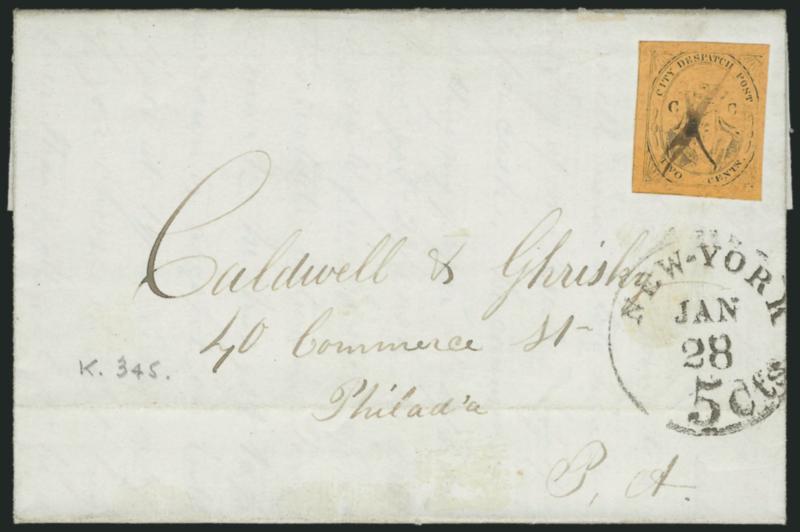 CITY DESPATCH POST
C C
TWO CENTS.
NEW-YORK
JAN
28
5 Cts
Caldwell & Ghrisky
40 Commerce St
Philad'a
P, A.
K. 345.